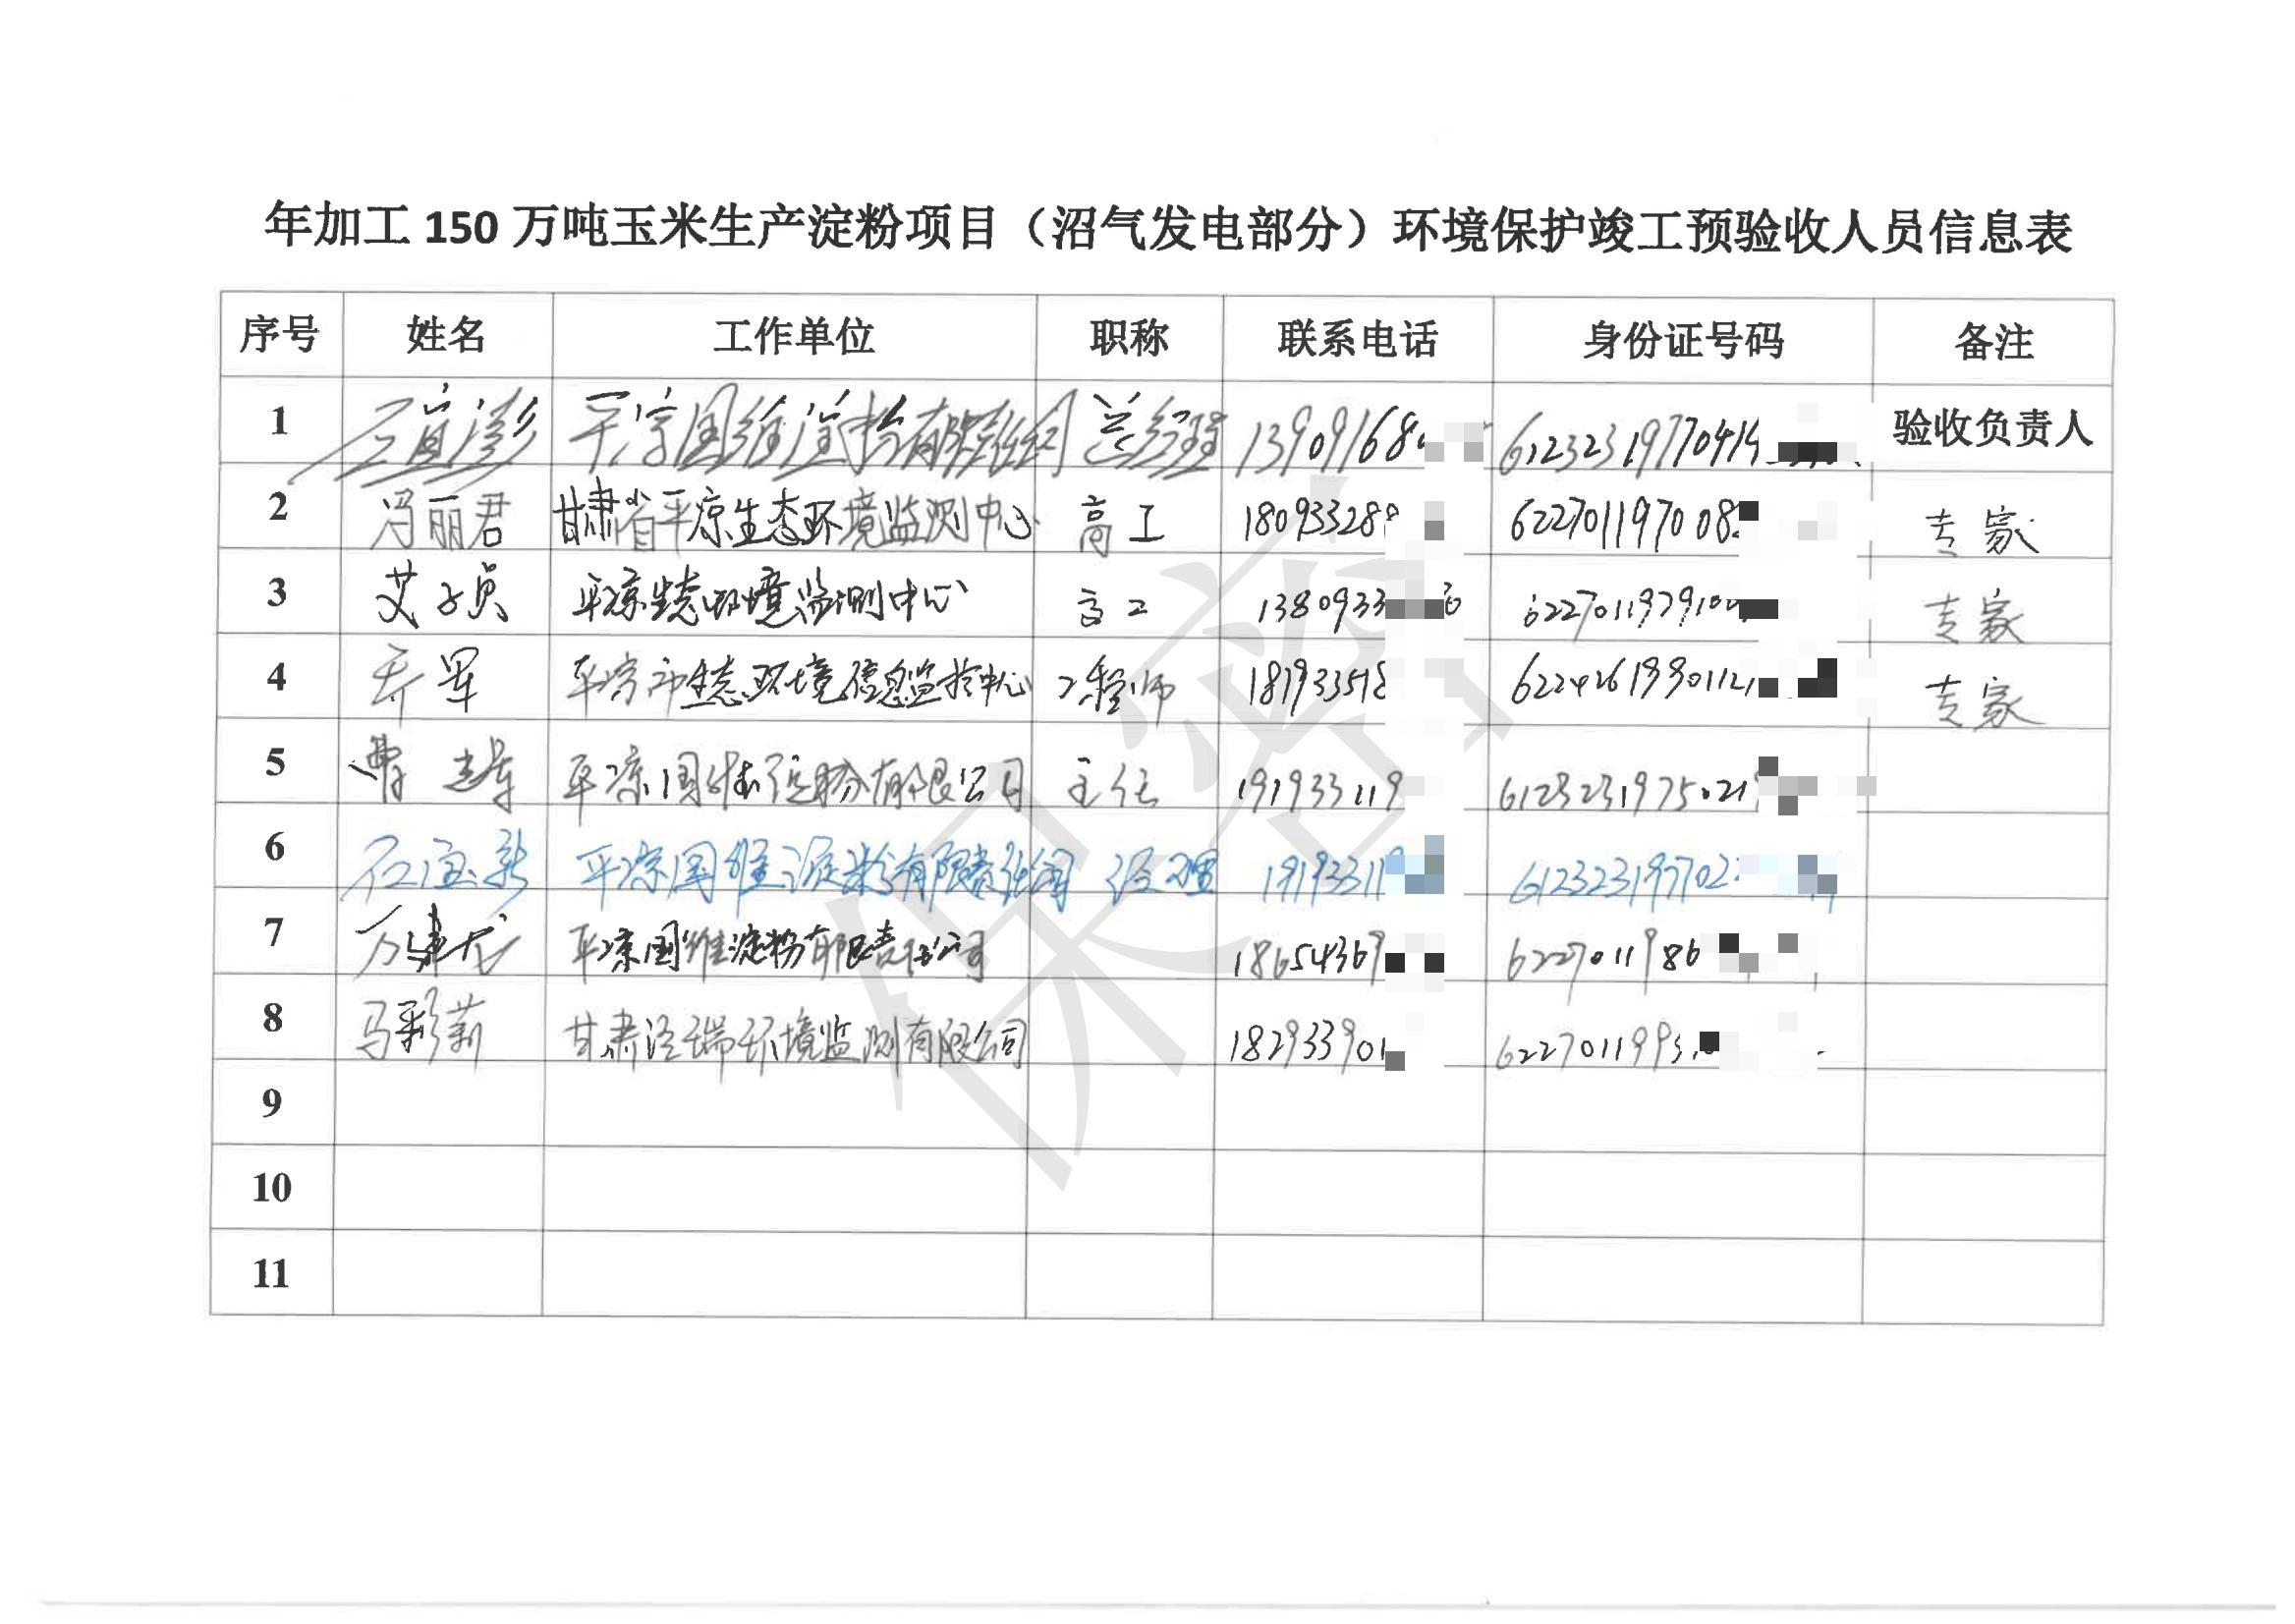 年加工 150 万吨玉米生产淀粉项目（沼气发电部分）环境保护竣工预验收人员信息表
序号 姓名 工作单位 职称 联系电话 身份证号码 备注
1 平凉国维淀粉有限责任公司 总经理 1390916 61232319770414 验收负责人
2 冯丽君 甘肃省平凉生态环境监测中心 高工 18093328 62270119700 专家
3 艾子贞 平凉生态环境监测中心 高工 1380933 622701197910 专家
4 乔军 平凉市生态环境信息监控中心 工程师 18193351 专家
5 曹 平凉国维淀粉有限公司 主任 191933119 6123231975021
6 石宝新 平凉国维淀粉有限责任公司 经理 19193311 61232319770
7 万建龙 平凉国维淀粉有限责任公司 1865436 6227011986
8 马彩莉 甘肃泾瑞环境监测有限公司 182933901 622701199
9
10
11
保密